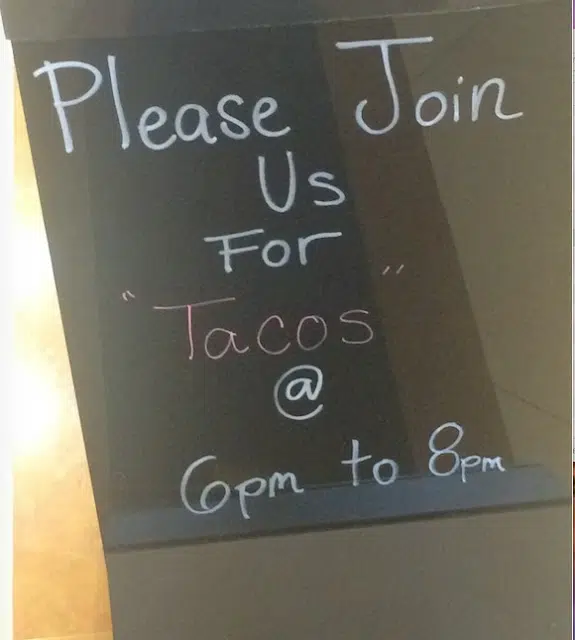 Please Join
Us
For
"Tacos"
@
6pm to 8pm